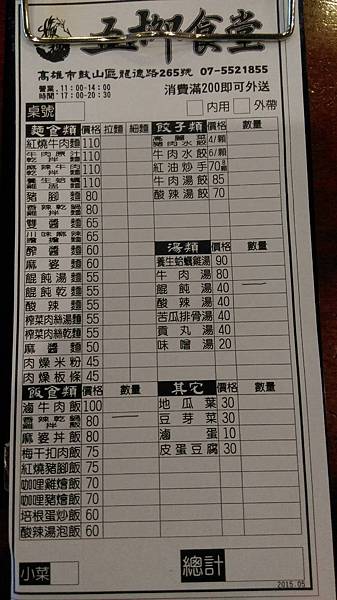 五柳食堂
高雄市鼓山區龍德路265號 07-5521855
營業：11:00-14:00
時間：17:00-20:30
消費滿200即可外送
桌號
內用 外帶
麵食類 價格 拉麵 細麵
紅燒牛肉麵 110
牛肉原汁乾拌麵 110
麻辣牛肉乾拌麵 110
養生蛤蠣雞湯麵 110
豬腳麵 80
香辣乾鍋雞拌麵 80
雙醬麵 65
川味麻辣擔擔麵 65
酢醬麵 60
麻婆麵 60
餛飩湯麵 55
餛飩乾麵 55
酸辣麵 55
榨菜肉絲湯麵 55
榨菜肉絲乾麵 55
麻醬麵 50
肉燥米粉 45
肉燥板條 45
飯食類 價格 數量
滷牛肉飯 100
香辣乾鍋雞拌飯 80
麻婆丼飯 80
梅干扣肉飯 75
紅燒豬腳飯 75
咖哩雞燴飯 70
咖哩豬燴飯 70
培根蛋炒飯 60
酸辣湯泡飯 60
小菜
餃子類 價格 數量
高麗菜豬肉水餃 4/顆
牛肉水餃 6/顆
紅油炒手 70
牛肉湯餃 85
酸辣湯餃 70
湯類 價格 數量
養生蛤蠣雞湯 90
牛肉湯 80
餛飩湯 40
酸辣湯 40
苦瓜排骨湯 40
貢丸湯 40
味噌湯 20
其它 價格 數量
地瓜葉 30
豆芽菜 30
滷蛋 10
皮蛋豆腐 30
總計
2015.05